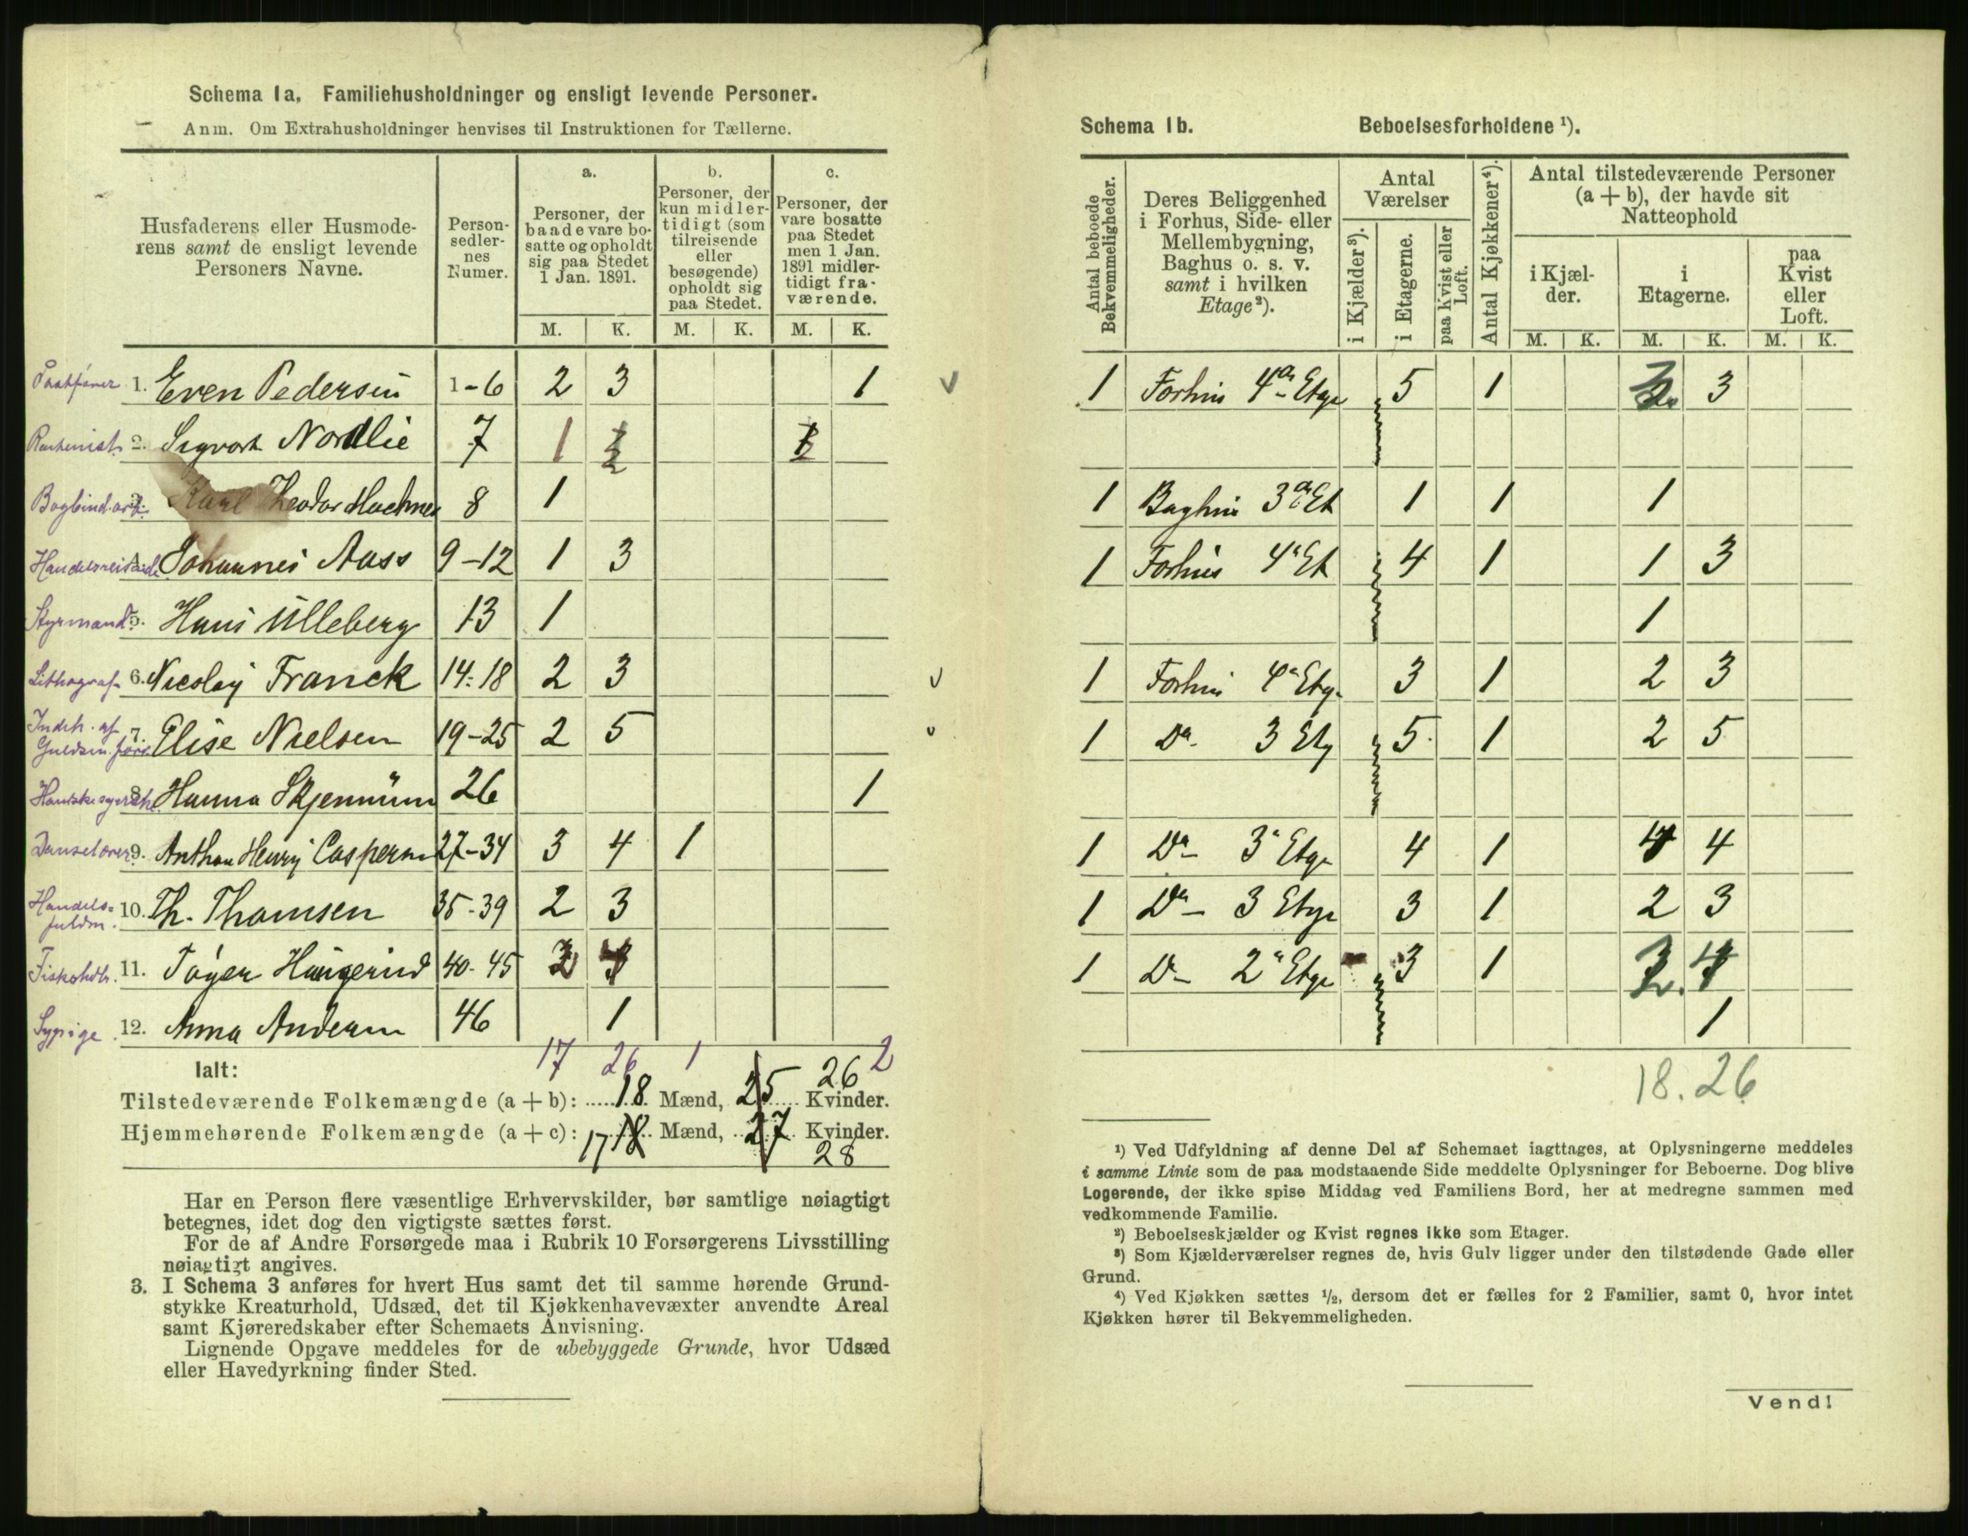 Schema 1a. Familiehusholdninger og ensligt levende Personer.
Anm. Om Extrahusholdninger henvises til Instruktionen for Tællerne.
Husfaderens eller Husmoderens samt de ensligt levende Personers Navne.
Person-sedler-nes Numer.
a. Personer, der baade vare bosatte og opholdt sig paa Stedet 1 Jan. 1891.
b. Personer, der kun midlertidigt (som tilreisende eller besøgende) opholdt sig paa Stedet.
c. Personer, der vare bosatte paa Stedet men 1 Jan. 1891 midlertidigt fraværende.
M. K. M. K. M. K.
1. Even Pedersen 1-6 2 3 1
2. Sigvart Nordlie 7 1
Bogbind.arb. 3. Karl Theodor 8 1
Handelsreisende 4. Johannes Aass 9-12 1 3
Styrmand 5. Hans Ulleberg 13 1
Lithograf 6. Nicolay Franck 14-18 2 3
Indeh. af Guldsm. forr. 7. Elise Nielsen 19-25 2 5
8. Hanna 26 1
Danselærer 9. Anthon Henry Caspersen 27-34 3 4 1
Handels= fuldm. 10. Th. Thomsen 35-39 2 3
Fiskehdlr. 11. 40-45
Sypige 12. Anna Andersen 46 1
17 26 1 2
Ialt:
Tilstedeværende Folkemængde (a + b): 18 Mænd, 25 26 Kvinder.
Hjemmehørende Folkemængde (a + c): 17 18 Mænd, 27 Kvinder.
28
Har en Person flere væsentlige Erhvervskilder, bør samtlige nøiagtigt
betegnes, idet dog den vigtigste sættes først.
For de af Andre Forsørgede maa i Rubrik 10 Forsørgerens Livsstilling
nøiagtigt angives.
3. I Schema 3 anføres for hvert Hus samt det til samme hørende Grund-
stykke Kreaturhold, Udsæd, det til Kjøkkenhavevæxter anvendte Areal
samt Kjøreredskaber efter Schemaets Anvisning.
Lignende Opgave meddeles for de ubebyggede Grunde, hvor Udsæd
eller Havedyrkning finder Sted.
Schema 1b. Beboelsesforholdene ¹).
Antal beboede Bekvemmeligheder.
Deres Beliggenhed i Forhus, Side- eller Mellembygning, Baghus o. s. v. samt i hvilken Etage²).
Antal Værelser
i Kjælder³).
i Etagerne.
paa Kvist eller Loft.
Antal Kjøkkener⁴).
Antal tilstedeværende Personer (a + b), der havde sit Natteophold
i Kjælder.
i Etagerne.
paa Kvist eller Loft.
M. K. M. K. M. K.
1 Forhus 4de Etge 5 1 2 3
1 Baghus 3de Et 1 1 1
1 Forhus 4e Et 4 1 1 3
1
1 Forhus 4e Etg. 3 1 2 3
1 Do 3 Etg 5 1 2 5
1 Do 3e Etge 4 1 4 4
1 Do 3 Etge 3 1 2 3
1 Do 2e Etge 3 1
1
18. 26
¹) Ved Udfyldning af denne Del af Schemaet iagttages, at Oplysningerne meddeles
i samme Linie som de paa modstaaende Side meddelte Oplysninger for Beboerne. Dog blive
Logerende, der ikke spise Middag ved Familiens Bord, her at medregne sammen med
vedkommende Familie.
²) Beboelseskjælder og Kvist regnes ikke som Etager.
³) Som Kjælderværelser regnes de, hvis Gulv ligger under den tilstødende Gade eller
Grund.
⁴) Ved Kjøkken sættes ½, dersom det er fælles for 2 Familier, samt 0, hvor intet
Kjøkken hører til Bekvemmeligheden.
Vend!